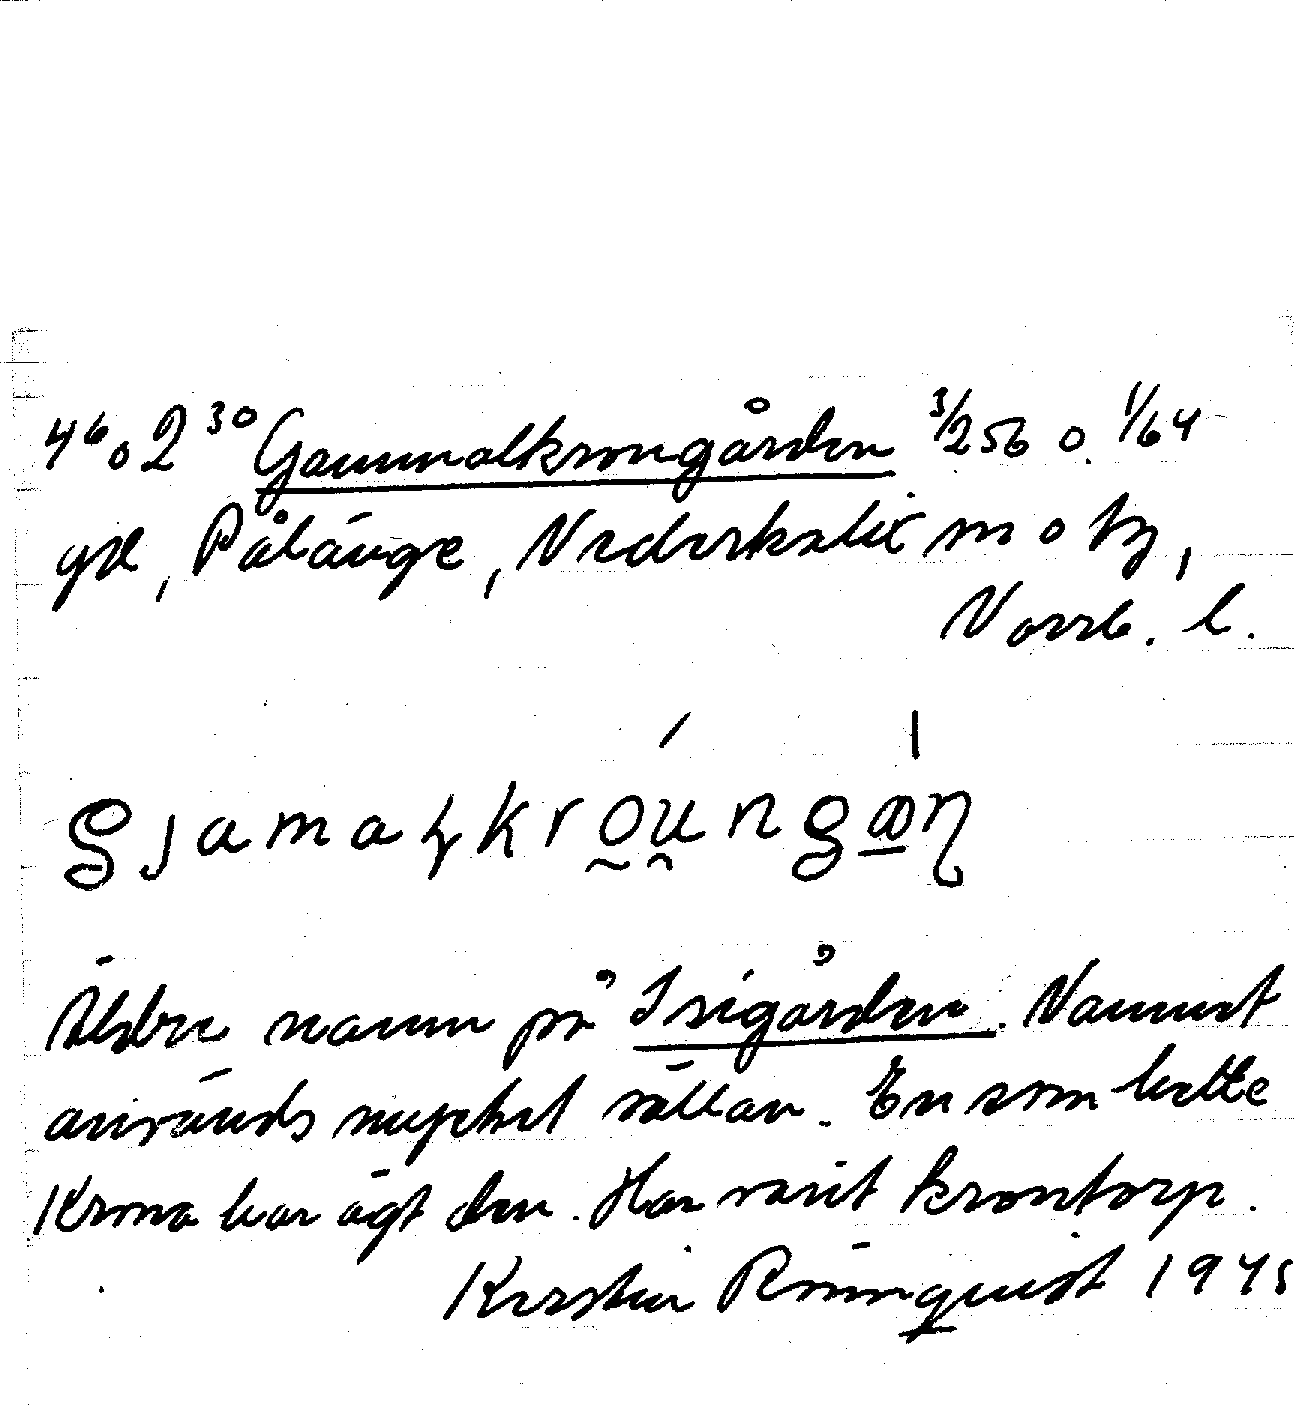 4⁶ o 2³⁰ Gammalkrongården 3/256 o. 1/64
gd, Pålänge, Nederkalix sn o tg,
Norrb. l.
gjamaɫkro̰ṵngæ̲ŋ
Äldre namn på Isigården. Namnet
används mycket sällan. En som hette
Krona har ägt den. Har varit krontorp.
Kerstin Rönnquist 1945